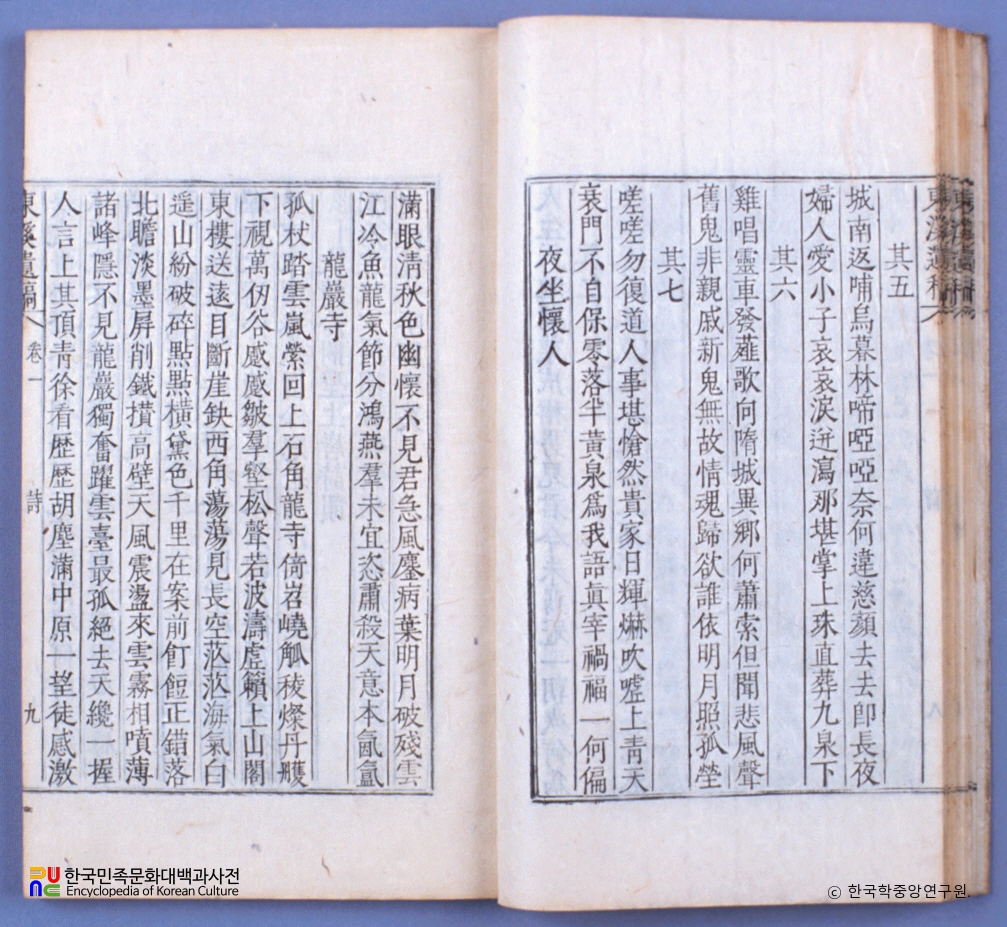 其五
城南返哺烏暮林啼啞啞奈何違慈顔去去卽長夜
婦人愛小子哀哀淚迸瀉那堪掌上珠直葬九泉下
其六
雞唱靈車發薤歌向隋城異鄕何蕭索但聞悲風聲
舊鬼非親戚新鬼無故情魂歸欲誰依明月照孤塋
其七
嗟嗟勿復道人事堪愴然貴家日輝爀吹噓上靑天
衰門不自保零落半黃泉爲我語眞宰禍福一何偏
夜坐懷人
滿眼淸秋色幽懷不見君急風鏖病葉明月破殘雲
江冷魚龍氣節分鴻燕羣未宜恣肅殺天意本氤氳
龍巖寺
孤杖踏雲嵐縈回上石角龍寺倚岧嶢觚稜燦丹雘
下視萬仞谷慼慼皺羣壑松聲若波濤虛籟上山閣
東樓送遠目斷崖缺西角蕩蕩見長空茫茫海氣白
遥山紛破碎點點橫黛色千里在案前飣餖正錯落
北瞻淡墨屛削鐵攅高壁天風震盪來雲霧相噴薄
諸峰隱不見龍巖獨奮躍雲臺最孤絕去天纔一握
人言上其頂靑徐看歴歴胡塵滿中原一望徒感激
東溪遺稿 卷一 詩 九
한국민족문화대백과사전
Encyclopedia of Korean Culture
© 한국학중앙연구원.